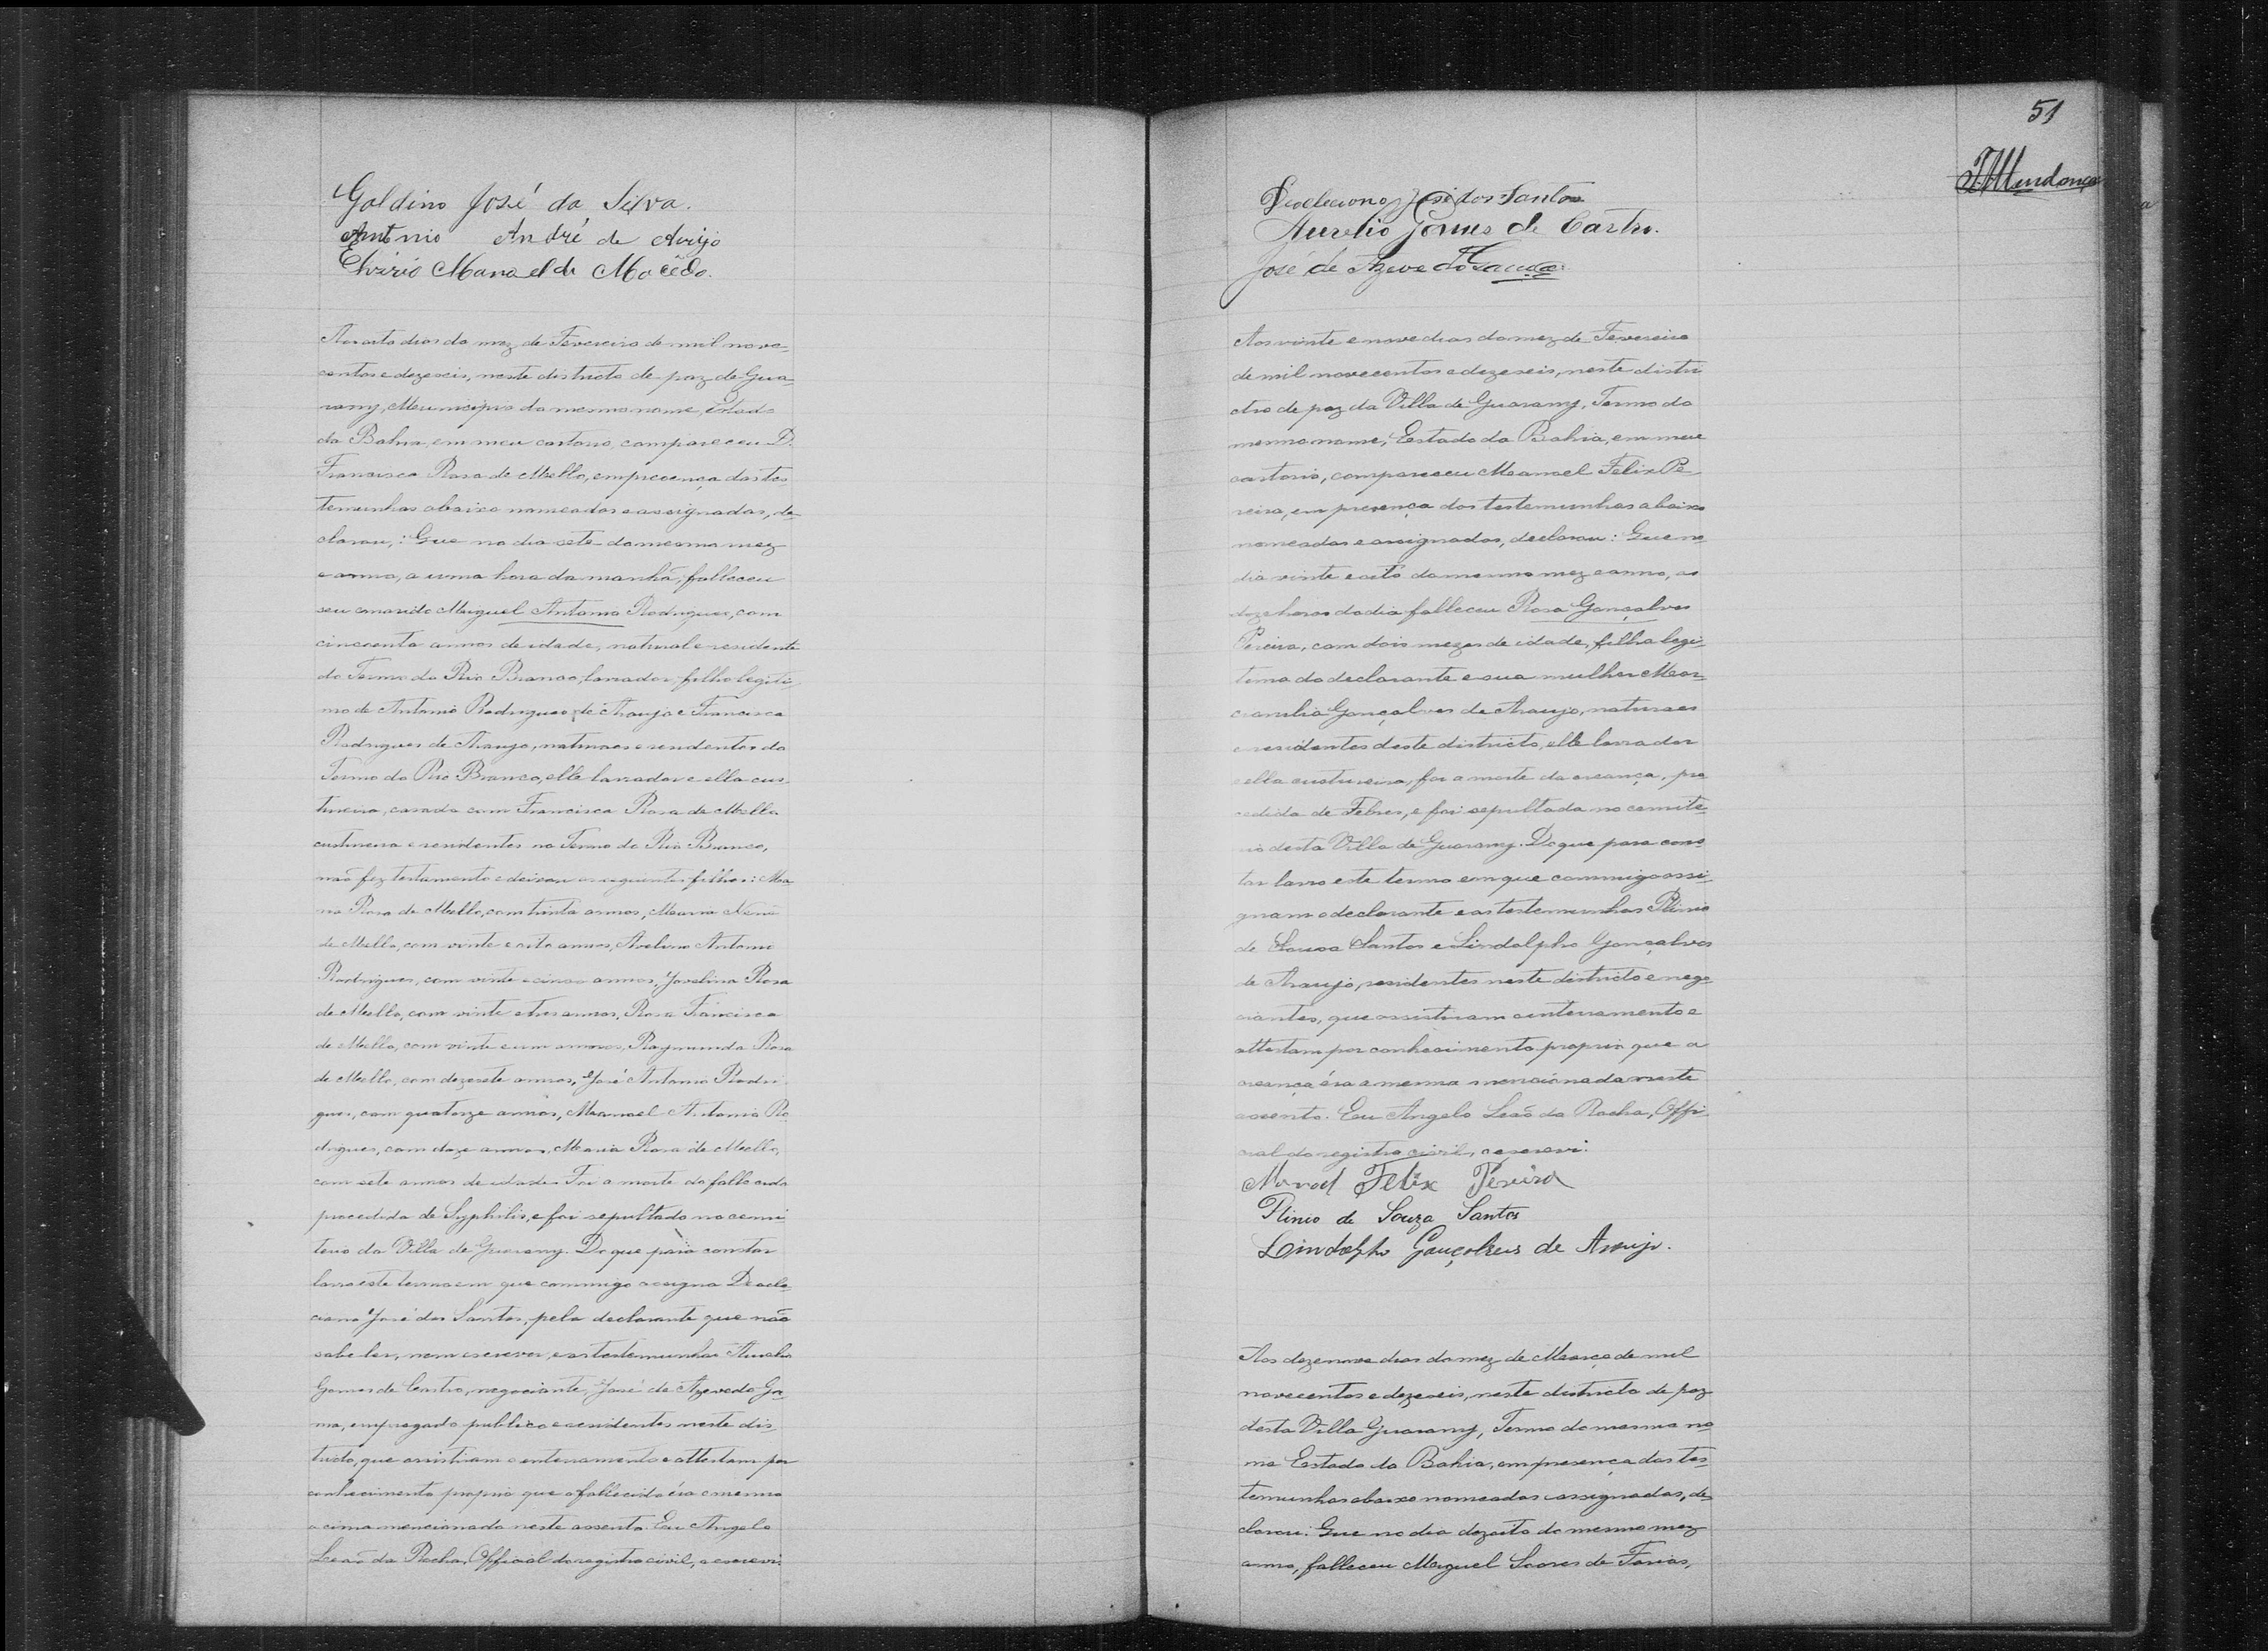 Galdino José da Silva.
Antonio André de Araujo
Manoel de Macêdo.
Aos oito dias do mez de Fevereiro de mil nove-
centos e dezeseis, neste districto de paz de Gua-
rany, Municipio do mesmo nome, Estado
da Bahia, em meu cartorio, compareceu D.
Francisca Rosa de Mello, em presença das tes-
temunhas abaixo nomeadas e assignadas, de-
clarou,: Que no dia sete do mesmo mez
e anno, a uma hora da manhã, falleceu
seu marido Miguel Antonio Rodrigues, com
cincoenta annos de idade, natural e residente
do Termo do Rio Branco, lavrador, filho legiti-
mo de Antonio Rodrigues de Araujo e Francisca
Rodrigues de Araujo, naturaes e residentes do
Termo do Rio Branco, elle lavrador e ella cus-
tureira, casado com Francisca Rosa de Mello
custureira e residentes no Termo do Rio Branco,
não fez testamento e deixou os seguintes filhos: Ma-
ria Rosa de Mello, com trinta annos, Maria
de Mello, com vinte e oito annos, Avelino Antonio
Rodrigues, com vinte e cinco annos, Joselina Rosa
de Mello, com vinte e tres annos, Rosa Francisca
de Mello, com vinte e um annos, Raymunda Rosa
de Mello, com dezesete annos, José Antonio Rodri-
gues, com quatorze annos, Manoel Antonio Ro-
drigues, com doze annos, Maria Rosa de Mello,
com sete annos de idade. Foi a morte do fallecido
procedida de Syphilis, e foi sepultado no cemi-
terio da Villa de Guarany. De que para constar
lavro este termo em que commigo assigna Deocle-
ciano José dos Santos, pela declarante que não
sabe ler, nem escrever, e as testemunhas Aurelio
Gomes de Castro, negociante, José de Azevedo Ga-
ma, empregado publico e residentes neste dis-
tricto, que assistiram o enterramento e attestam por
conhecimento proprio que o fallecido éra o mesmo
acima mencionado neste assento. Eu Angelo
Leão da Rocha, Official do registro civil, o escrevi.
51
Mendonça
Deocleciano José dos Santos
Aurelio Gomes de Castro.
José de Azevedo Gama
Aos vinte e nove dias do mez de Fevereiro
de mil novecentos e dezeseis, neste distri-
cto de paz da Villa de Guarany, Termo do
mesmo nome, Estado da Bahia, em meu
cartorio, compareceu Manoel Felix Pe-
reira, em presença das testemunhas abaixo
nomeadas e assignadas, declarou: Que no
dia vinte e oito do mesmo mez e anno, as
doze horas do dia falleceu Rosa Gonçalves
Pereira, com dois mezes de idade, filha legi-
tima do declarante e sua mulher Mar-
Gonçalves de Araujo, naturaes
e residentes deste districto, elle lavrador
e ella custureira, foi a morte da creança, pro-
cedida de Febres, e foi sepultada no cemite-
rio desta Villa de Guarany. De que para cons-
tar lavro este termo em que commigo assi-
gnam o declarante e as testemunhas Plinio
de Souza Santos e Lindolpho Gonçalves
de Araujo, residentes neste districto e nego-
ciantes, que assistiram o enterramento e
attestam por conhecimento proprio que a
creança éra a mesma mencionada neste
assento. Eu Angelo Leão da Rocha, Offi-
cial do registro civil, o escrevi.
Manoel Felix Pereira
Plinio de Souza Santos
Lindolpho Gonçalves de Araujo.
Aos dezenove dias do mez de Março de mil
novecentos e dezeseis, neste districto de paz
desta Villa Guarany, Termo do mesmo no-
me Estado da Bahia, em presença das tes-
temunhas abaixo nomeadas e assignadas, de-
clarou: Que no dia dezoito do mesmo mez
anno, falleceu Miguel Soares de Farias,